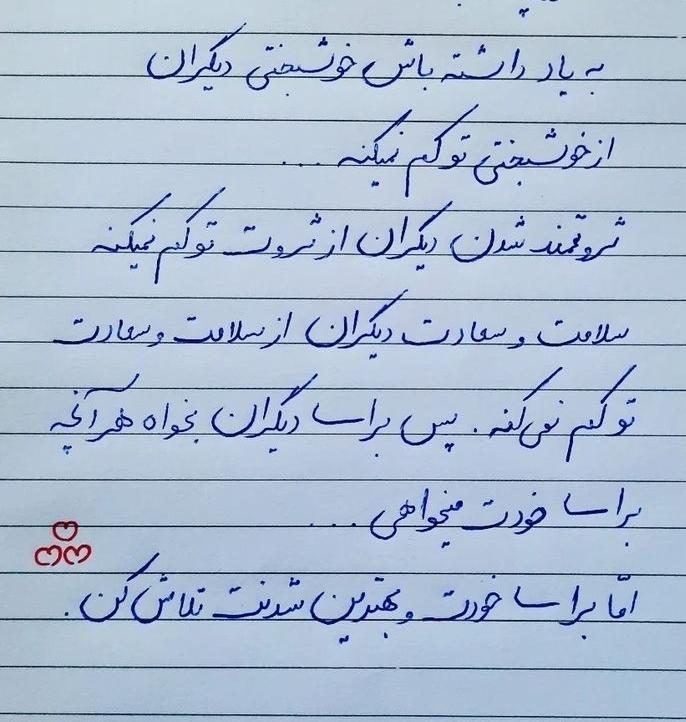 به یاد داشته باش خوشبختی دیگران
از خوشبختی تو کم نمیکنه ...
ثروتمند شدن دیگران از ثروت تو کم نمیکنه
سلامت و سعادت دیگران از سلامت و سعادت
تو کم نمی‌کنه. پس برای دیگران بخواه هر آنچه
برای خودت میخواهی ...
امّا برای خودت و بهترین شدنت تلاش کن.